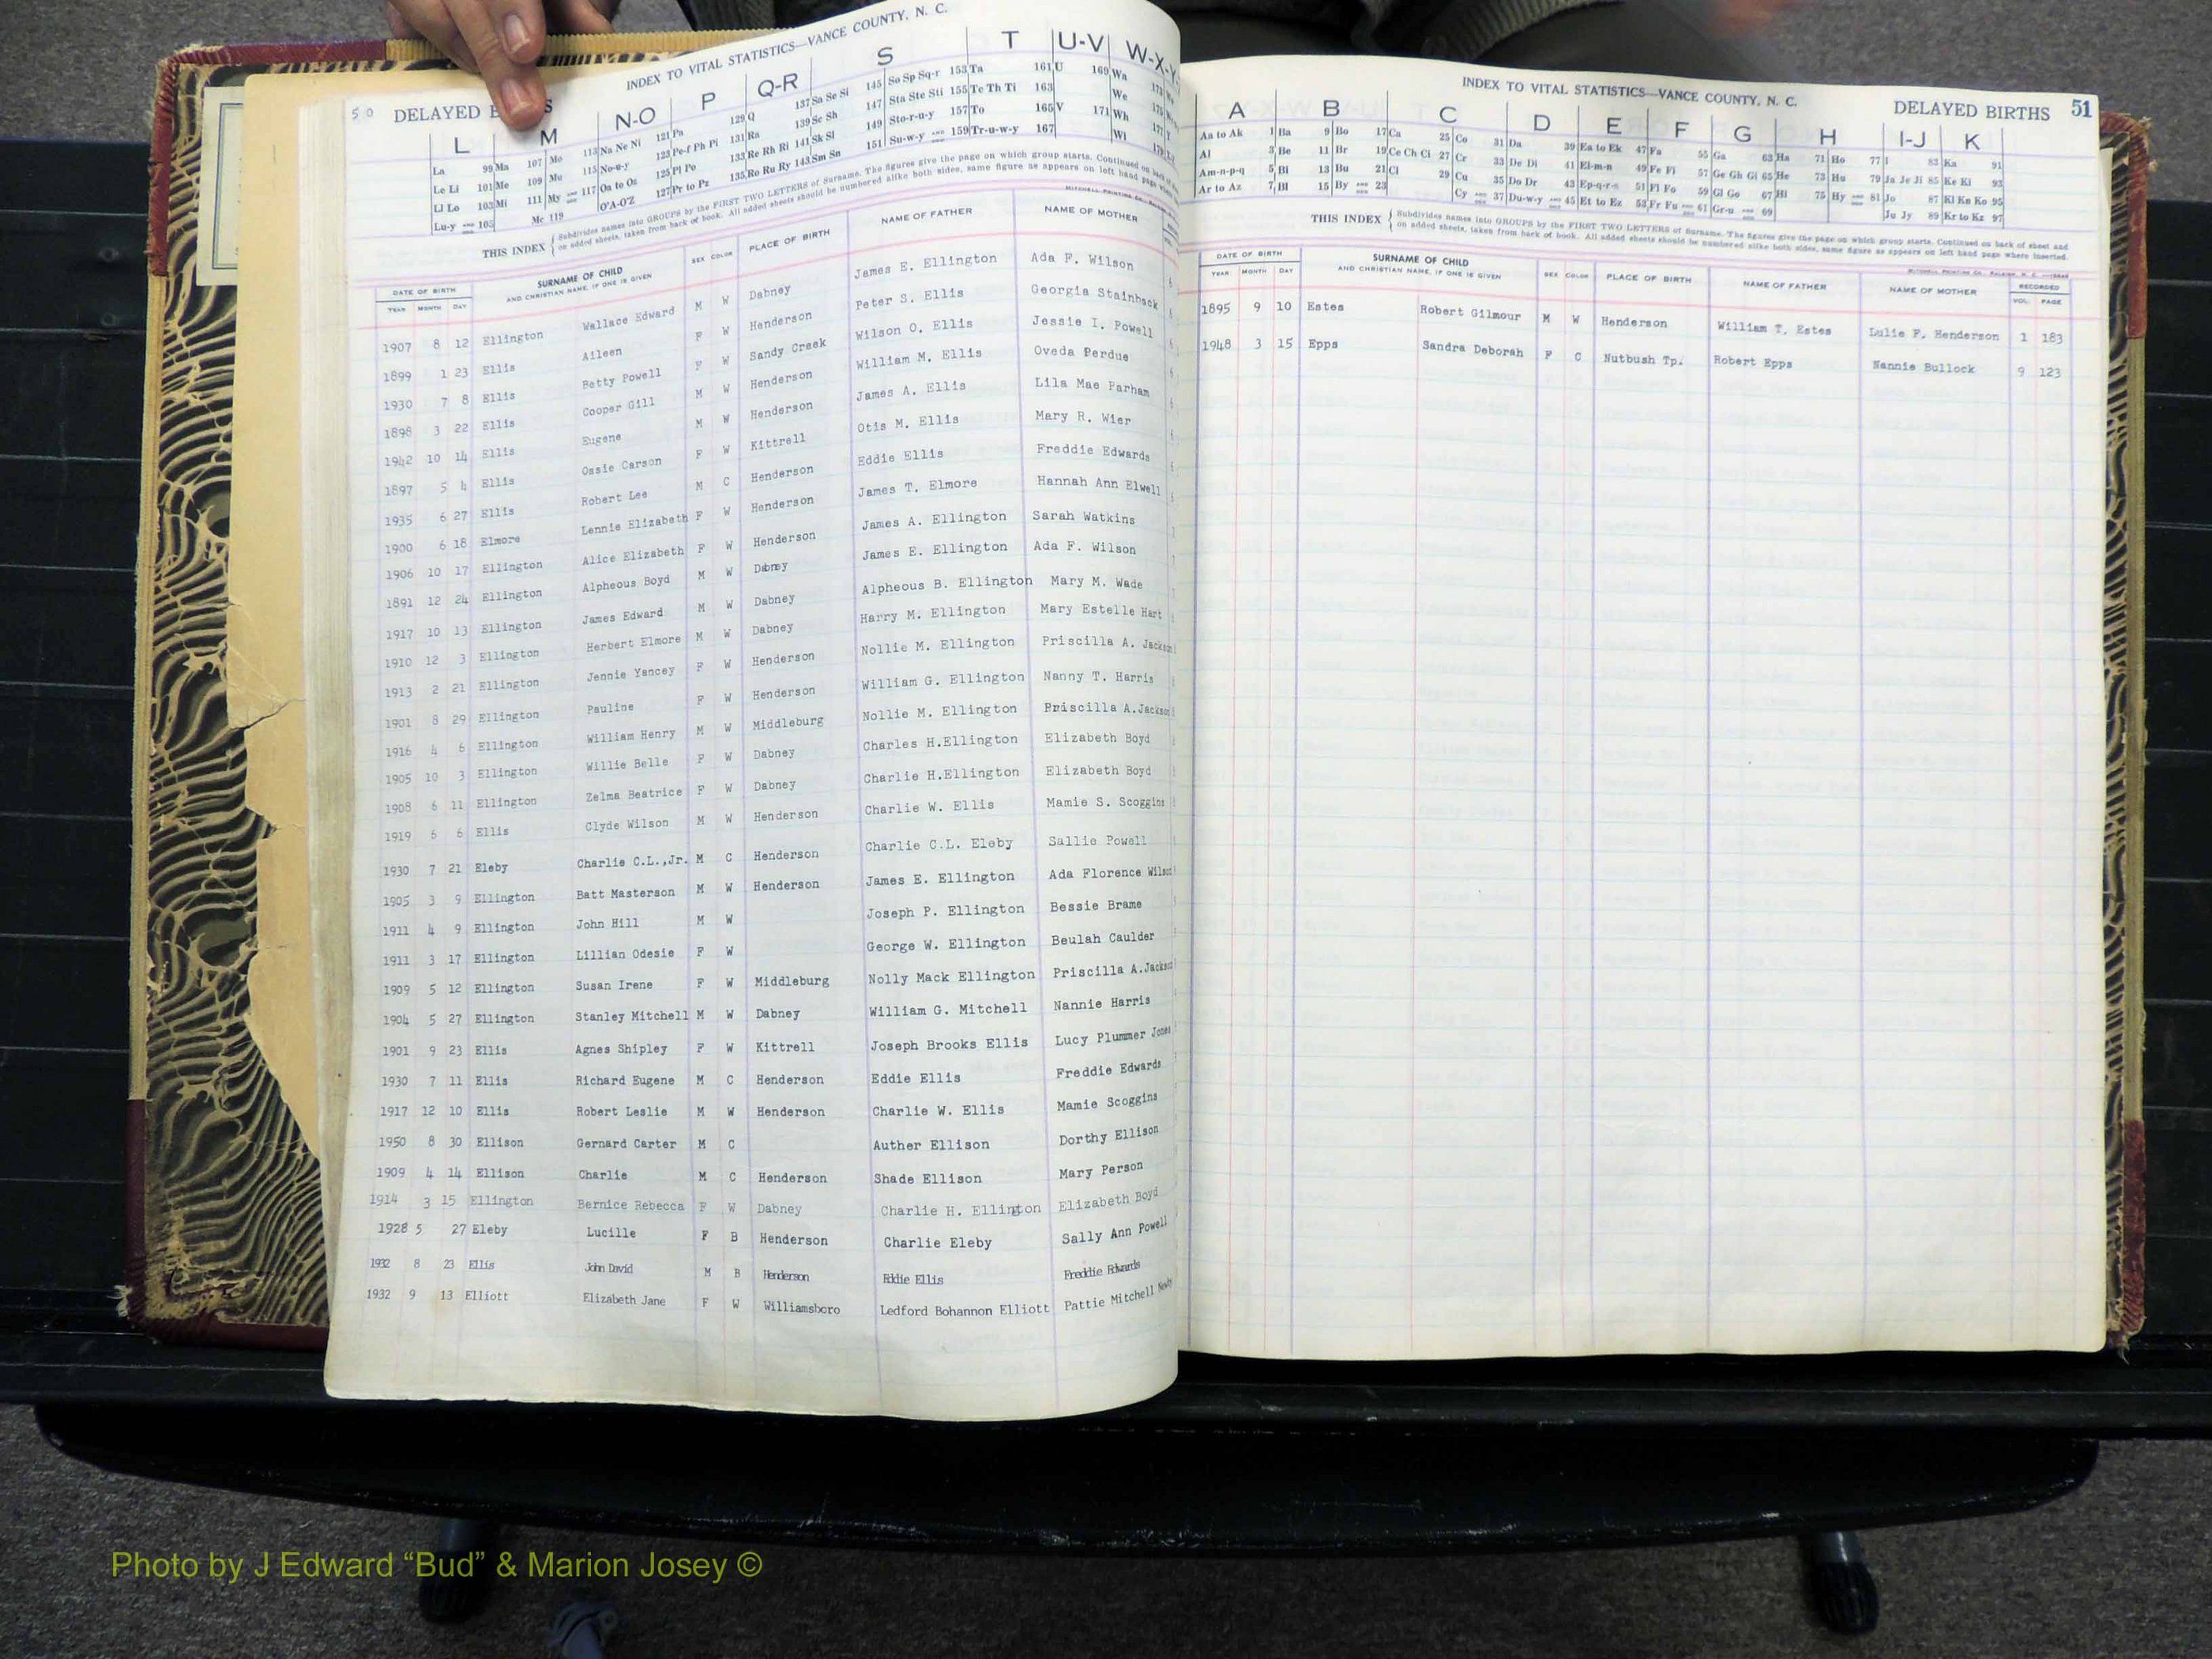 50 DELAYED B S INDEX TO VITAL STATISTICS—VANCE COUNTY, N. C.
L M N-O P Q-R S T U-V W-X-Y
La 99 Ma 107 Mo 113 Na Ne Ni 121 Pa 129 Q 137 Sa Se Si 145 So Sp Sq-r 153 Ta 161 U 169 Wa
Le Li 101 Me 109 Mu 115 No-u-y 123 Pe-f Ph Pi 131 Ra 139 Sc Sh 147 Sta Ste Sti 155 Te Th Ti 163 We
Ll Lo 103 Mi 111 My AND 117 Oa to Oz 125 Pl Po 133 Re Rh Ri 141 Sk Sl 149 Sto-r-u-y 157 To 165 V 171 Wh
Lu-y AND 105 Mc 119 O'A-O'Z 127 Pr to Pz 135 Ro Ru Ry 143 Sm Sn 151 Su-w-y AND 159 Tr-u-w-y 167 Wi
THIS INDEX { Subdivides names into GROUPS by the FIRST TWO LETTERS of Surname. The figures give the page on which group starts. Continued on back of
on added sheets, taken from back of book. All added sheets should be numbered alike both sides, same figure as appears on left hand page
DATE OF BIRTH SURNAME OF CHILD SEX COLOR PLACE OF BIRTH NAME OF FATHER NAME OF MOTHER
YEAR MONTH DAY AND CHRISTIAN NAME, IF ONE IS GIVEN
1907 8 12 Ellington Wallace Edward M W Dabney James E. Ellington Ada F. Wilson
1899 1 23 Ellis Aileen F W Henderson Peter S. Ellis Georgia Stainback
1930 7 8 Ellis Betty Powell F W Sandy Creek Wilson O. Ellis Jessie I. Powell
1898 3 22 Ellis Cooper Gill M W Henderson William M. Ellis Oveda Perdue
1942 10 14 Ellis Eugene M W Henderson James A. Ellis Lila Mae Parham
1897 5 4 Ellis Ossie Carson F W Kittrell Otis M. Ellis Mary R. Wier
1935 6 27 Ellis Robert Lee M C Henderson Eddie Ellis Freddie Edwards
1900 6 18 Elmore Lennie Elizabeth F W Henderson James T. Elmore Hannah Ann Elwell
1906 10 17 Ellington Alice Elizabeth F W Henderson James A. Ellington Sarah Watkins
1891 12 24 Ellington Alpheous Boyd M W Dabney James E. Ellington Ada F. Wilson
1917 10 13 Ellington James Edward M W Dabney Alpheous B. Ellington Mary M. Wade
1910 12 3 Ellington Herbert Elmore M W Dabney Harry M. Ellington Mary Estelle Hart
1913 2 21 Ellington Jennie Yancey F W Henderson Nollie M. Ellington Priscilla A. Jackson
1901 8 29 Ellington Pauline F W Henderson William G. Ellington Nanny T. Harris
1916 4 6 Ellington William Henry M W Middleburg Nollie M. Ellington Priscilla A.Jackson
1905 10 3 Ellington Willie Belle F W Dabney Charles H.Ellington Elizabeth Boyd
1908 6 11 Ellington Zelma Beatrice F W Dabney Charlie H.Ellington Elizabeth Boyd
1919 6 6 Ellis Clyde Wilson M W Henderson Charlie W. Ellis Mamie S. Scoggins
1930 7 21 Eleby Charlie C.L.,Jr. M C Henderson Charlie C.L. Eleby Sallie Powell
1905 3 9 Ellington Batt Masterson M W Henderson James E. Ellington Ada Florence Wilson
1911 4 9 Ellington John Hill M W Joseph P. Ellington Bessie Brame
1911 3 17 Ellington Lillian Odesie F W George W. Ellington Beulah Caulder
1909 5 12 Ellington Susan Irene F W Middleburg Nolly Mack Ellington Priscilla A.Jackson
1904 5 27 Ellington Stanley Mitchell M W Dabney William G. Mitchell Nannie Harris
1901 9 23 Ellis Agnes Shipley F W Kittrell Joseph Brooks Ellis Lucy Plummer Jones
1930 7 11 Ellis Richard Eugene M C Henderson Eddie Ellis Freddie Edwards
1917 12 10 Ellis Robert Leslie M W Henderson Charlie W. Ellis Mamie Scoggins
1950 8 30 Ellison Gernard Carter M C Auther Ellison Dorthy Ellison
1909 4 14 Ellison Charlie M C Henderson Shade Ellison Mary Person
1914 3 15 Ellington Bernice Rebecca F W Dabney Charlie H. Ellington Elizabeth Boyd
1928 5 27 Eleby Lucille F B Henderson Charlie Eleby Sally Ann Powell
1932 8 23 Ellis John David M B Henderson Eddie Ellis Freddie Edwards
1932 9 13 Elliott Elizabeth Jane F W Williamsboro Ledford Bohannon Elliott Pattie Mitchell
INDEX TO VITAL STATISTICS—VANCE COUNTY, N. C. DELAYED BIRTHS 51
A B C D E F G H I-J K
Aa to Ak 1 Ba 9 Bo 17 Ca 25 Co 31 Da 39 Ea to Ek 47 Fa 55 Ga 63 Ha 71 Ho 77 I 83 Ka 91
Al 3 Be 11 Br 19 Ce Ch Ci 27 Cr 33 De Di 41 El-m-n 49 Fe Fi 57 Ge Gh Gi 65 He 73 Hu 79 Ja Je Ji 85 Ke Ki 93
Am-n-p-q 5 Bi 13 Bu 21 Cl 29 Cu 35 Do Dr 43 Ep-q-r-s 51 Fl Fo 59 Gl Go 67 Hi 75 Hy AND 81 Jo 87 Kl Kn Ko 95
Ar to Az 7 Bl 15 By AND 23 Cy AND 37 Du-w-y AND 45 Et to Ez 53 Fr Fu AND 61 Gr-u AND 69 Ju Jy 89 Kr to Kz 97
THIS INDEX { Subdivides names into GROUPS by the FIRST TWO LETTERS of Surname. The figures give the page on which group starts. Continued on back of sheet and
on added sheets, taken from back of book. All added sheets should be numbered alike both sides, same figure as appears on left hand page where inserted.
DATE OF BIRTH SURNAME OF CHILD SEX COLOR PLACE OF BIRTH NAME OF FATHER NAME OF MOTHER RECORDED
YEAR MONTH DAY AND CHRISTIAN NAME, IF ONE IS GIVEN VOL. PAGE
1895 9 10 Estes Robert Gilmour M W Henderson William T. Estes Lulie F. Henderson 1 183
1948 3 15 Epps Sandra Deborah F C Nutbush Tp. Robert Epps Nannie Bullock 9 123
Photo by J Edward “Bud” & Marion Josey ©